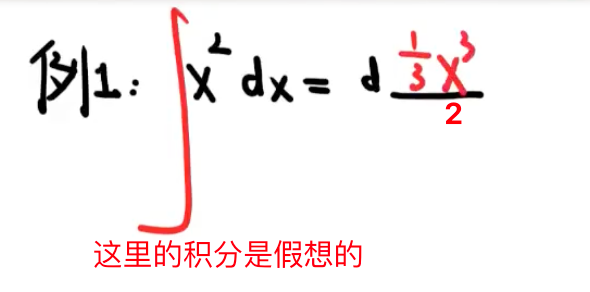 例1: ∫x² dx = d 1/3 x³
2
这里的积分是假想的